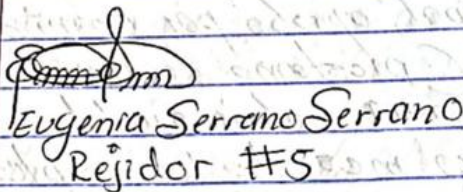 Eugenia Serrano Serrano
Rejidor #5